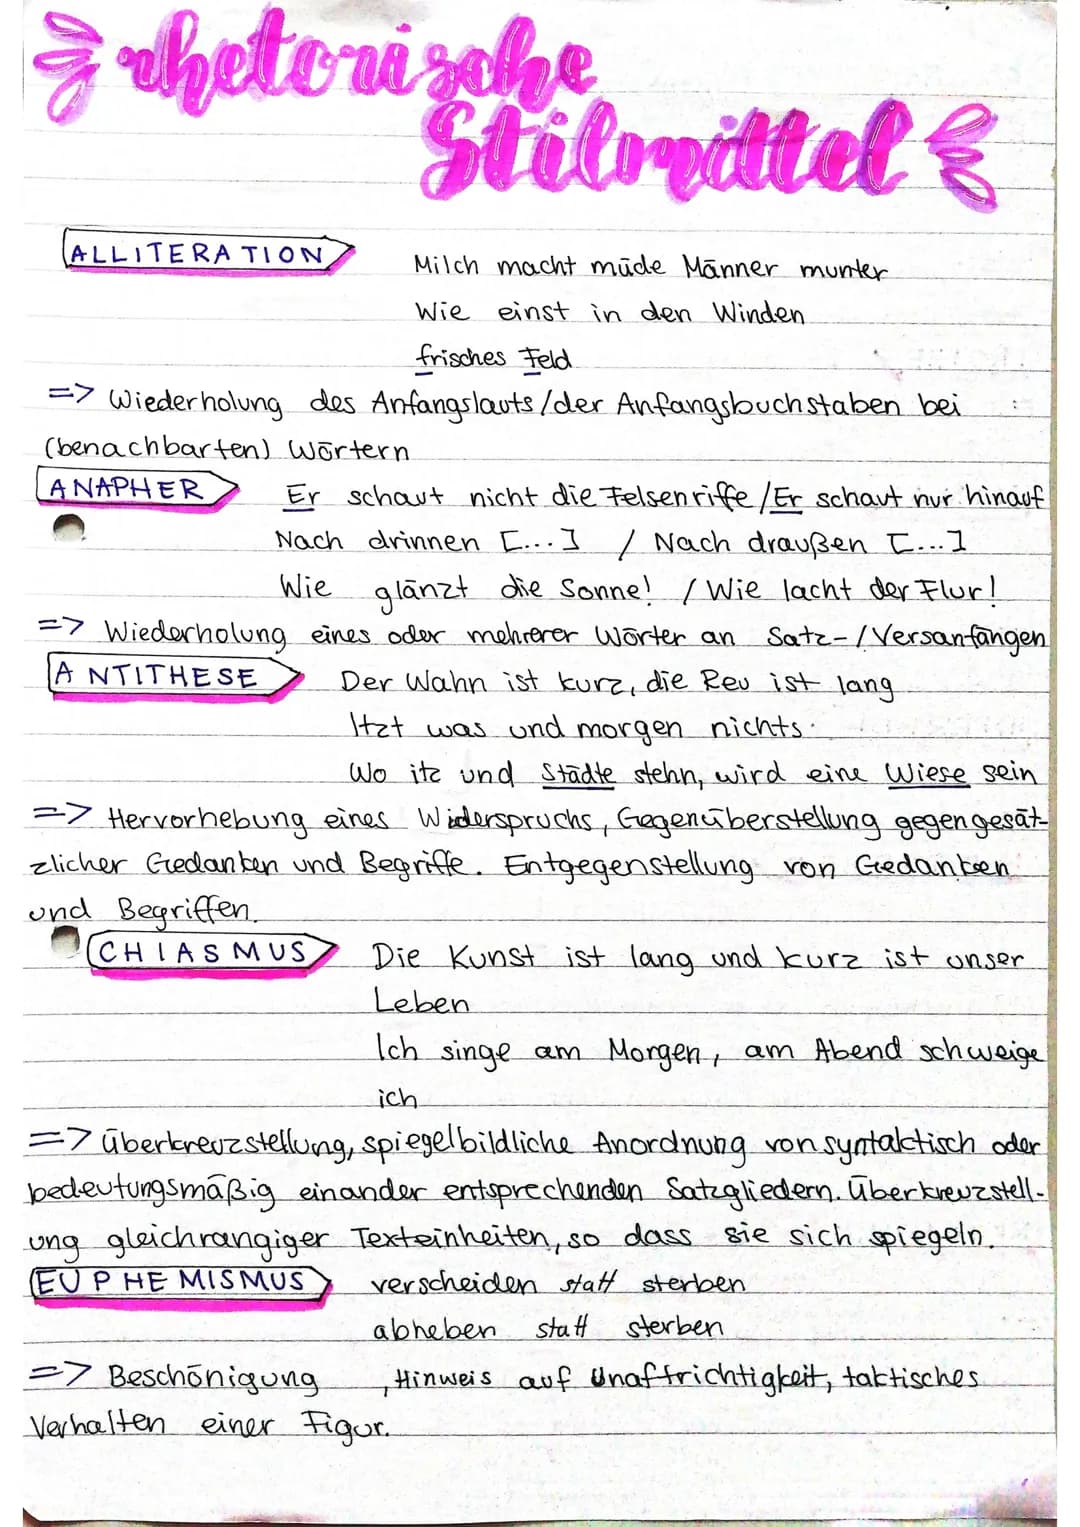 rhetorische
Stilmittel
ALLITERATION
Milch macht müde Männer munter
Wie einst in den Winden
frisches Feld
=> Wiederholung des Anfangslauts/der Anfangsbuchstaben bei
(benachbarten) Wörtern
ANAPHER
Er schaut nicht die Felsenriffe/Er schaut nur hinauf
Nach drinnen [...] / Nach draußen [...]
Wie glänzt die Sonne! / Wie lacht der Flur!
=> Wiederholung eines oder mehrerer Wörter an Satz-/Versanfängen
ANTITHESE
Der Wahn ist kurz, die Reu ist lang
Itzt was und morgen nichts.
Wo itz und Städte stehn, wird eine Wiese sein
=> Hervorhebung eines Widerspruchs, Gegenüberstellung gegengesät-
zlicher Gedanken und Begriffe. Entgegenstellung von Gedanken
und Begriffen.
CHIASMUS
Die Kunst ist lang und kurz ist unser
Leben
Ich singe am Morgen, am Abend schweige
ich
=> Überkreuzstellung, spiegelbildliche Anordnung von syntaktisch oder
bedeutungsmäßig einander entsprechenden Satzgliedern. Überkreuzstell-
ung gleichrangiger Texteinheiten, so dass sie sich spiegeln.
EUPHEMISMUS
verscheiden statt sterben
abheben statt sterben
=> Beschönigung , Hinweis auf Unaftrichtigkeit, taktisches
Verhalten einer Figur.